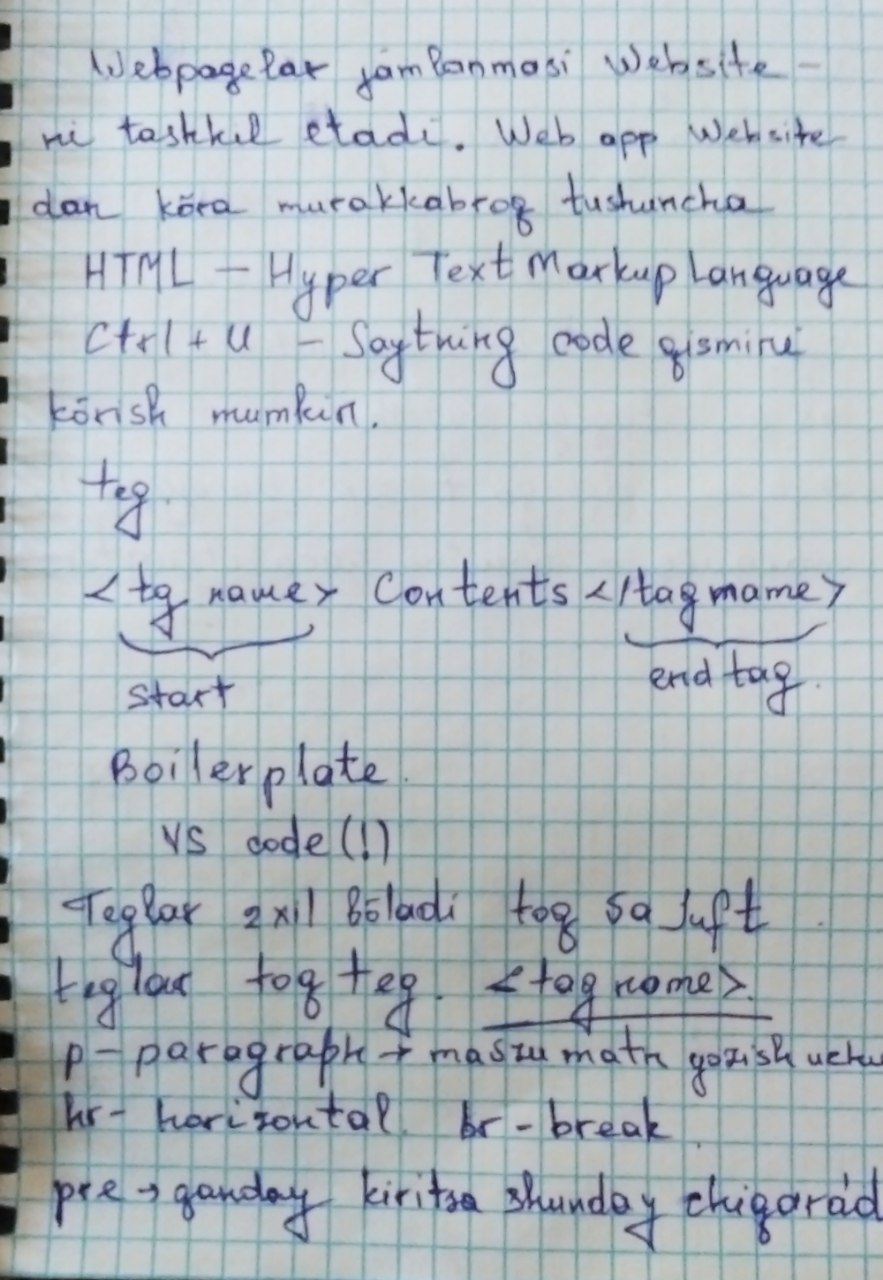 Webpagelar jamlanmasi Website-
ni tashkil etadi. Web app Website
dan kõra murakkabroq tushuncha
HTML – Hyper Text Markup Language
Ctrl + U – Saytning code qismini
kõrish mumkin.
teg.
<tg name> Contents </tag name>
start end tag.
Boilerplate.
VS code (!)
Teglar 2 xil bõladi toq va Juft.
teglar toq teg. <tag name>.
p – paragraph → mavzu matn yozish uchu
hr – horizontal. br – break.
pre → qanday kiritsa shunday chiqarad